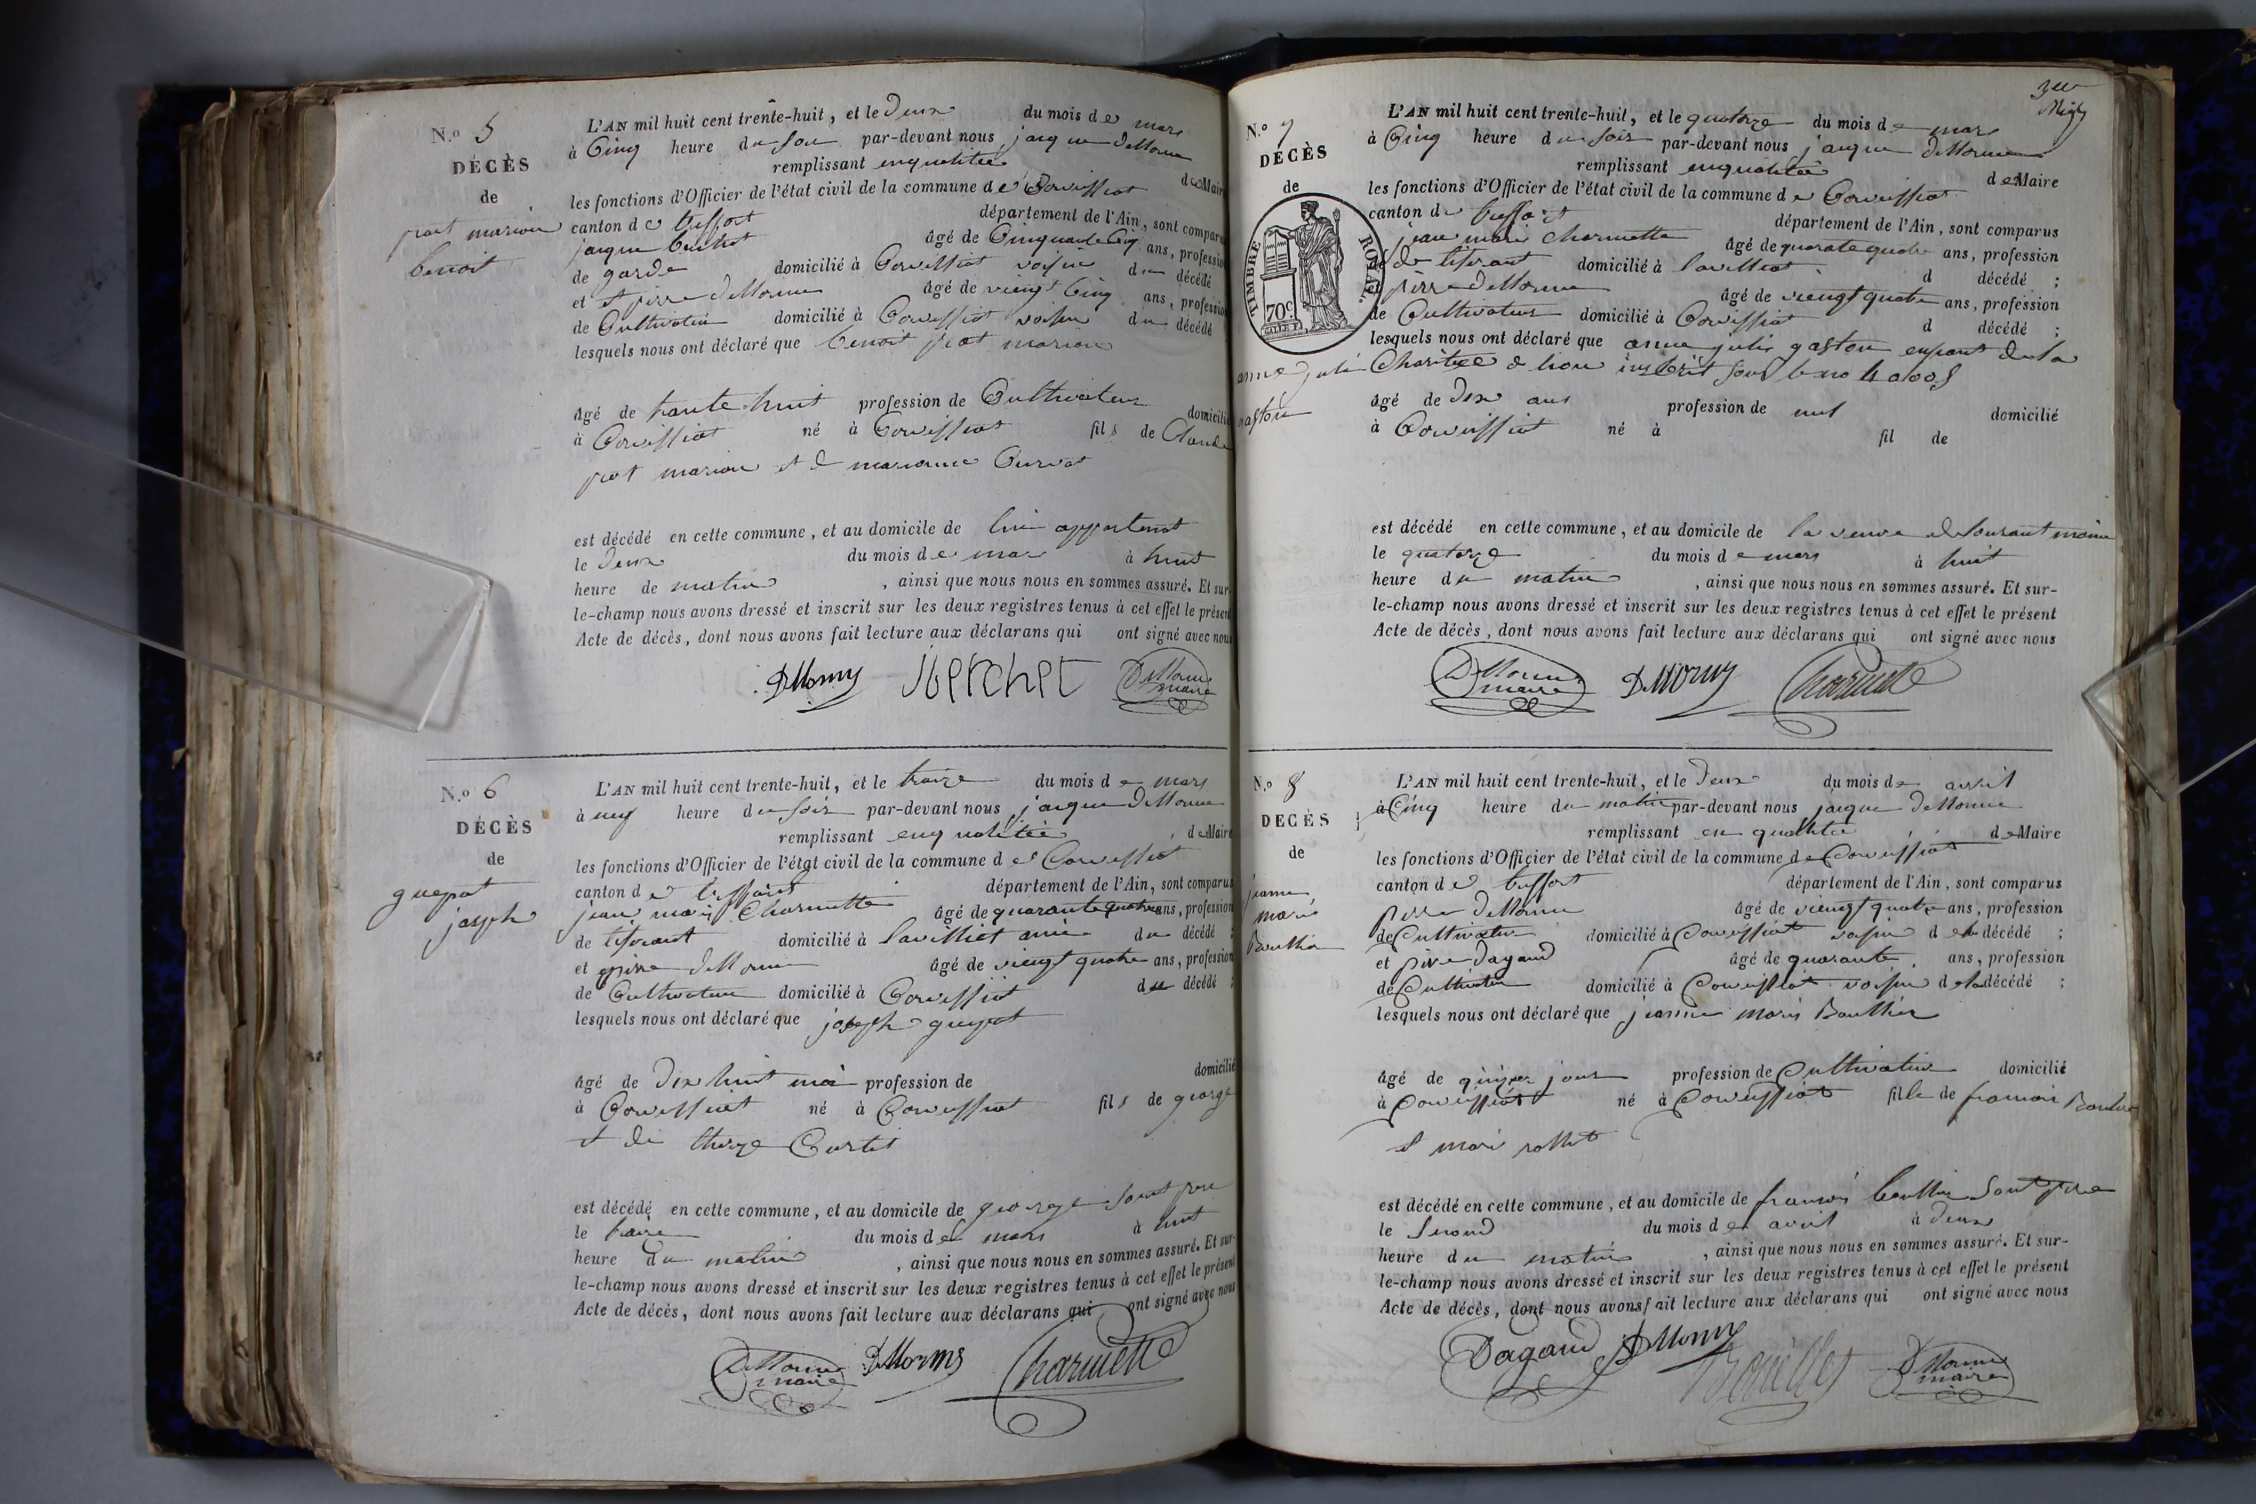 N.º 5
DÉCÈS
de
benoit
L'AN mil huit cent trente-huit, et le deux du mois de mars
à Cinq heure du soir par-devant nous jaque deMorme
remplissant enqualitée de Maire
les fonctions d'Officier de l'état civil de la commune de Corveissiat
canton de treffort département de l'Ain, sont comparus
jaque âgé de Cinquante Cinq ans, profession
de garde domicilié à Corveissiat voisin du décédé
et pierre deMorme âgé de viengt Cinq ans, profession
de Cultivateur domicilié à Corveissiat voisin du décédé
lesquels nous ont déclaré que benoit marion
âgé de trante huit profession de Cultivateur domicilié
à Corveissiat né à Corveissiat fils de Claude
marion et de marianne
est décédé en cette commune, et au domicile de lui appartenant
le deux du mois de mar à huit
heure de matin , ainsi que nous nous en sommes assuré. Et sur-
le-champ nous avons dressé et inscrit sur les deux registres tenus à cet effet le présent
Acte de décès, dont nous avons fait lecture aux déclarans qui ont signé avec nous
DMorme maire
N.º 6
DÉCÈS
de
guepat
joseph
L'AN mil huit cent trente-huit, et le traize du mois de mars
à neuf heure du soir par-devant nous jaque deMorme
remplissant enqualitée de Maire
les fonctions d'Officier de l'état civil de la commune de Corveissiat
canton de treffort département de l'Ain, sont comparus
jean marie Charnette âgé de quarante quatre ans, profession
de tiserant domicilié à Lavilliat ami du décédé ;
et pierre deMorme âgé de viengt quatre ans, profession
de Cultivateur domicilié à Corveissiat du décédé ;
lesquels nous ont déclaré que joseph guepat
âgé de dix huit moi profession de domicilié
à Corveissiat né à Corveissiat fils de george
et de Curtet
est décédé en cette commune, et au domicile de george sont père
le traize du mois de mars à huit
heure du matin , ainsi que nous nous en sommes assuré. Et sur-
le-champ nous avons dressé et inscrit sur les deux registres tenus à cet effet le présent
Acte de décès, dont nous avons fait lecture aux déclarans qui ont signé avec nous
DMorme maire Charnette
N.º 7
DÉCÈS
de
TIMBRE ROYAL
70c.
anne julie
gaston
L'AN mil huit cent trente-huit, et le quatorze du mois de mars
à Cinq heure du soir par-devant nous jaque deMorme
remplissant enqualitée de Maire
les fonctions d'Officier de l'état civil de la commune de Corveissiat
canton de treffort département de l'Ain, sont comparus
jean marie Charnette âgé de quarate quatre ans, profession
de tiserant domicilié à Lavilliat d décédé ;
pierre deMorme âgé de viengt quatre ans, profession
de Cultivateur domicilié à Corveissiat d décédé ;
lesquels nous ont déclaré que anne julie gaston enfant de la
Charitée de lion inscrit sous le no
âgé de dix ans profession de nul domicilié
à Corveissiat né à fil de
est décédé en cette commune, et au domicile de la veuve
le quatorze du mois de mars à huit
heure du matin , ainsi que nous nous en sommes assuré. Et sur-
le-champ nous avons dressé et inscrit sur les deux registres tenus à cet effet le présent
Acte de décès, dont nous avons fait lecture aux déclarans qui ont signé avec nous
DMorme maire Charnette
N.º 8
DÉCÈS
de
jeanne
marie
Bauthier
L'AN mil huit cent trente-huit, et le deux du mois de avril
à Cinq heure du matin par-devant nous jaque deMorme
remplissant en qualitée de Maire
les fonctions d'Officier de l'état civil de la commune de Corveissiat
canton de treffort département de l'Ain, sont comparus
pierre deMorme âgé de viengt quatre ans, profession
de Cultivateur domicilié à Corveissiat voisin de la décédé ;
et pierre dagand âgé de quarante ans, profession
de Cultivateur domicilié à Corveissiat voisin de la décédé ;
lesquels nous ont déclaré que jeanne marie Bauthier
âgé de quinze jour profession de Cultivateur domicilié
à Corveissiat né à Corveissiat fille de
et marie
est décédé en cette commune, et au domicile de bauthier sont père
le second du mois de avril à deux
heure du matin , ainsi que nous nous en sommes assuré. Et sur-
le-champ nous avons dressé et inscrit sur les deux registres tenus à cet effet le présent
Acte de décès, dont nous avons fait lecture aux déclarans qui ont signé avec nous
Dagand DMorme maire